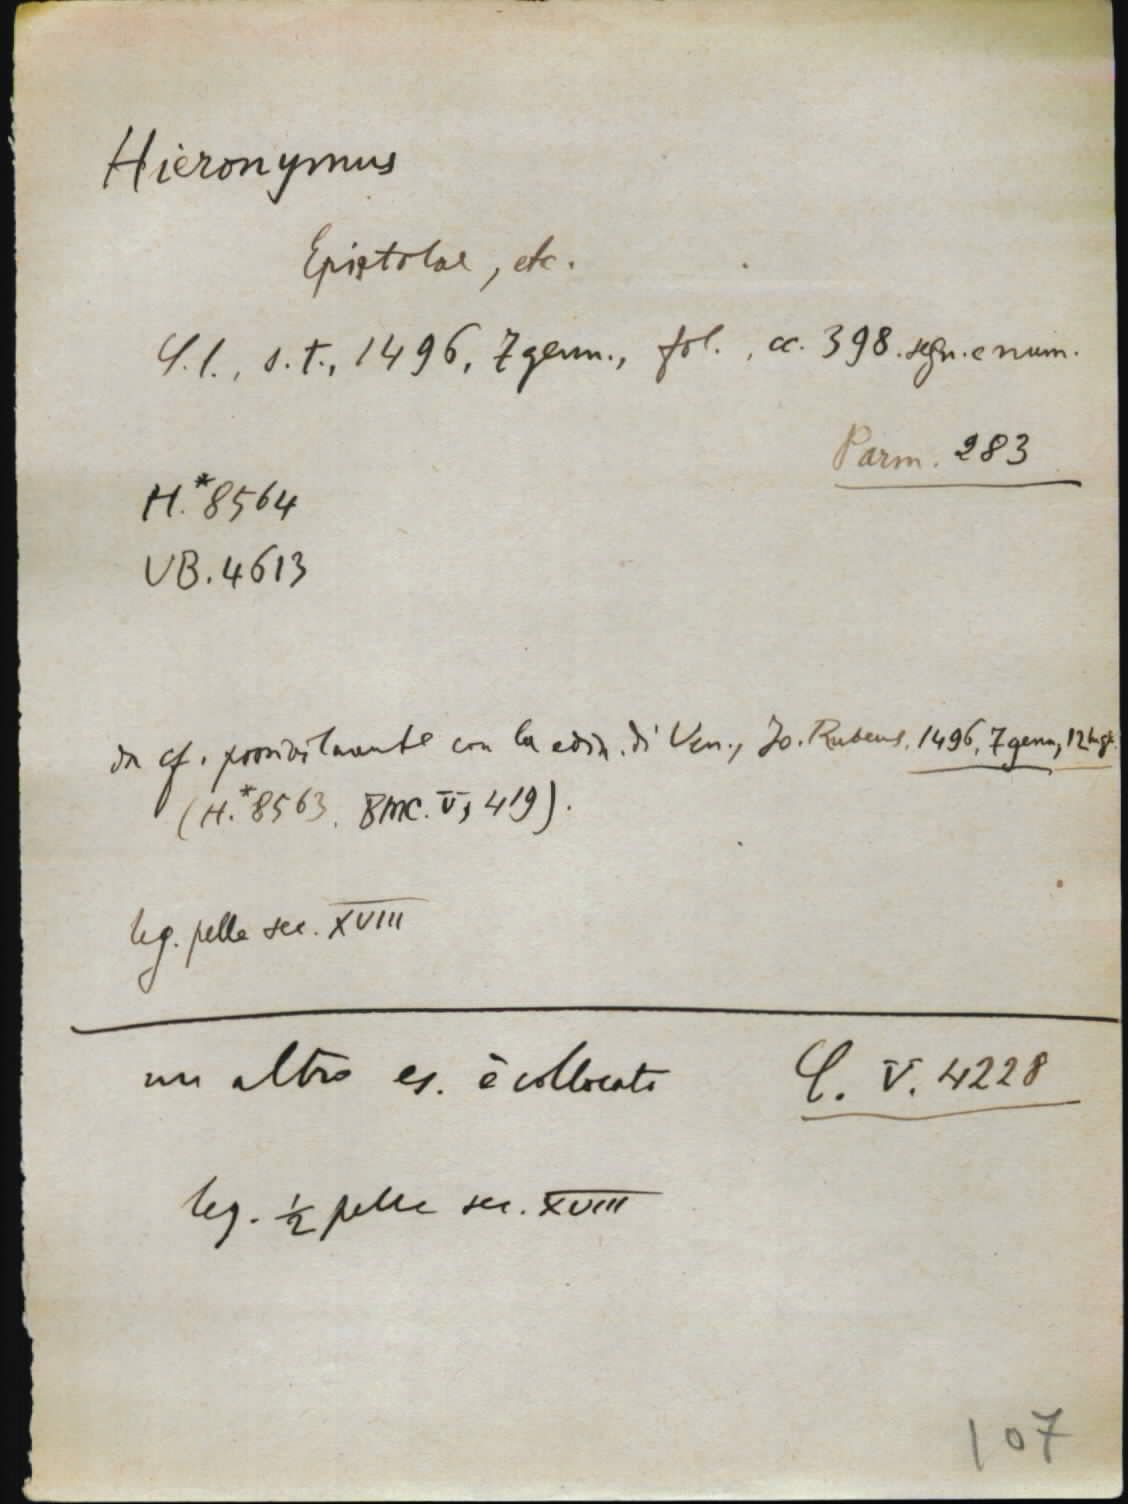 Hieronymus
Epistolae, etc.
S.l., s.t., 1496, 7 genn., fol., cc. 398. segn. e num.
Parm. 283
H.*8564
VB. 4613
da cf. possibilmente con la ediz. di Ven., Jo. Rubeus, 1496, 7 genn, 12 lugl.
(H.*8563. BMC. V, 419).
leg. pelle sec. XVIII
un altro es. è collocato S. V. 4228
leg. ½ pelle sec. XVIII
107